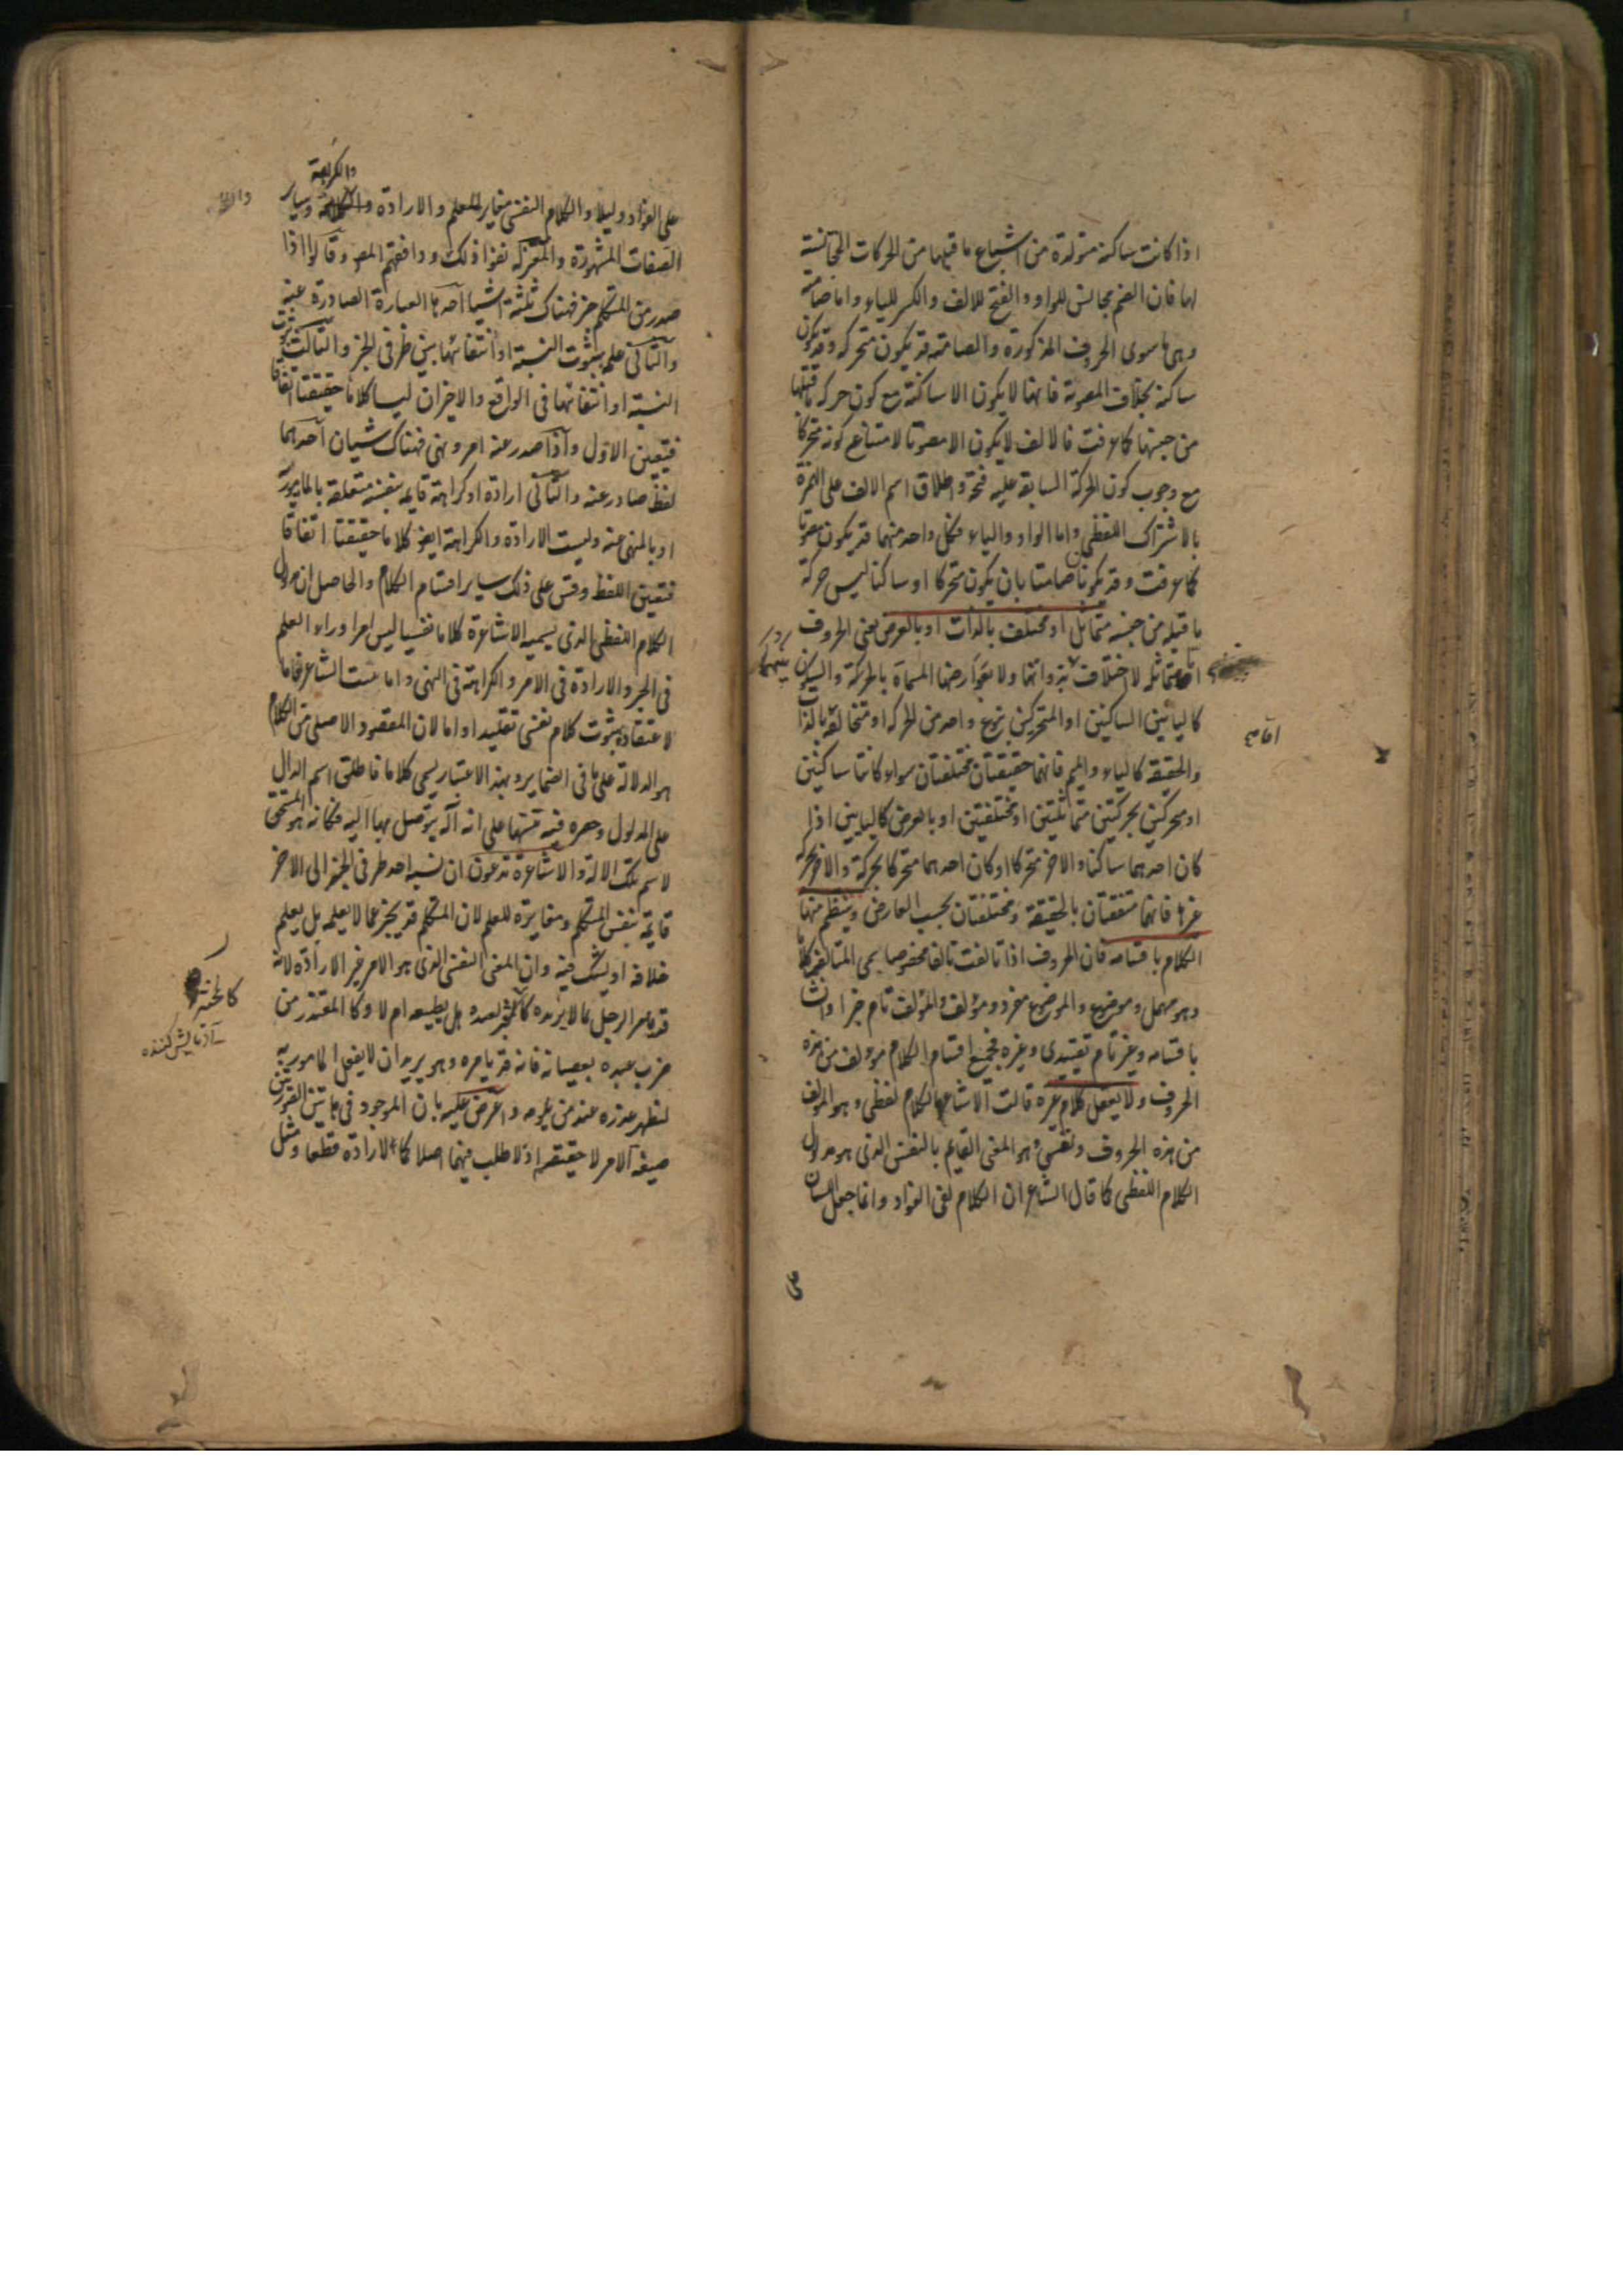 اذا كانت ساكنة متولدة من اشباع ما قبلها من الحركات المجانسة
لها فان الضم مجانس للواو والفتح للالف والكسر للياء واما صامتة
وهى ما سوى الحروف المذكورة والصامتة قد يكون متحركة وقد يكون
ساكنة بخلاف المصوتة فانها لا يكون الا ساكنة مع كون حركة ما قبلها
من جنسها كما عرفت فالالف لا يكون الا مصوتا لامتناع كونه متحركا
مع وجوب كون الحركة السابقة عليه فتحة واطلاق اسم الالف على الهمزة
بالاشتراك اللفظى واما الواو والياء فكل واحد منهما قد يكون مصوتا
كما عرفت وقد يكونا صامتا بان يكون متحركا او ساكنا ليس حركة
ما قبله من جنسه متماثل او مختلف بالذات او بالعرض يعنى الحروف
اما متماثله لا اختلاف بذواتها ولا بعوارضها المسماة بالحركة والسكون
كاليائين الساكنين او المتحركين بنوع واحد من الحركة او متخالفة بالذات
والحقيقة كالياء والميم فانهما حقيقتان مختلفتان سواء كانتا ساكنتين
او متحركتين بحركتين متماثلتين او مختلفتين او بالعرض كاليايين اذا
كان احدهما ساكنا والاخر متحركا او كان احدهما متحركا بحركة والاخر بحركة
غيرها فانهما متفقتان بالحقيقة ومختلفتان بحسب العارض وينتظم منها
الكلام باقسامه فان الحروف اذا تالفت تالفا مخصوصا يسمى المتالف كلاما
وهو مهمل وموضوع والموضوع مفرد ومؤلف والمؤلف تام خبرا وانشا
باقسامه وغير تام تقييدى وغيره فجميع اقسام الكلام مؤلف من هذه
الحروف ولا يعقل كلام غيره قالت الاشاعرة الكلام لفظى وهو المؤلف
من هذه الحروف ونفسى وهو المعنى القايم بالنفس الذى هو مدلول
الكلام اللفظى كما قال الشاعر ان الكلام لفى الفؤاد وانما جعل اللسان
على
والكراهة
على الفؤاد دليلا والكلام النفسى مغاير للعلم والارادة وساير
الصفات المشهورة والمعتزلة نفوا ذلك ووافقهم المص وقالوا اذا
صدر من المتكلم خبر فهناك ثلثة اشيا احدها العبارة الصادرة عنه
والثانى علمه بثبوت النسبة او انتفائها بين طرفى الخبر والثالث ثبوت
النسبة او انتفائها فى الواقع والاخيران ليسا كلاما حقيقتا اتفاقا
فتعين الاول واذا صدر عنه امر ونهى فهناك شيان احدهما
لفظ صادر عنه والثانى ارادة او كراهة قايمة بنفسه متعلقة بالمامور به
او بالمنهى عنه وليست الارادة والكراهة ايضا كلاما حقيقتا اتفاقا
فتعين اللفظ وقس على ذلك ساير اقسام الكلام والحاصل ان مدلول
الكلام اللفظى الذى يسميه الاشاعرة كلاما نفسيا ليس امرا وراء العلم
فى الخبر والارادة فى الامر والكراهة فى النهى واما بيت الشاعر فاما
لاعتقاده بثبوت كلام نفسى تقليدا واما لان المقصود الاصلى من الكلام
هو الدلالة على ما فى الضماير وبهذا الاعتبار يسمى كلاما فاطلق اسم الدال
على المدلول وحصره فيه تنبيها على انه آلة يتوصل بها اليه فكانه هو المستحق
لاسم تلك الالة والاشاعرة تدعون ان نسبة احد طرفى الخبر الى الاخر
قايمة بنفس المتكلم ومغايرة للعلم لان المتكلم قد يخبر عما لا يعلمه بل يعلم
خلافه او يشك فيه وان المعنى النفسى الذى هو الامر غير الارادة لانه
قد يامر الرجل بما لا يريده كالمختبر لعبده هل يطيعه ام لا وكالمعتذر من
ضرب عبده بعصيانه فانه قد يامره وهو يريد ان لا يفعل المامور به
ليظهر عذره عند من يلومه واعترض عليه بان الموجود فى هاتين الصورتين
صيغة الامر لا حقيقته اذ لا طلب فيهما اصلا كما لا ارادة قطعا ومثل
آزمايش كننده